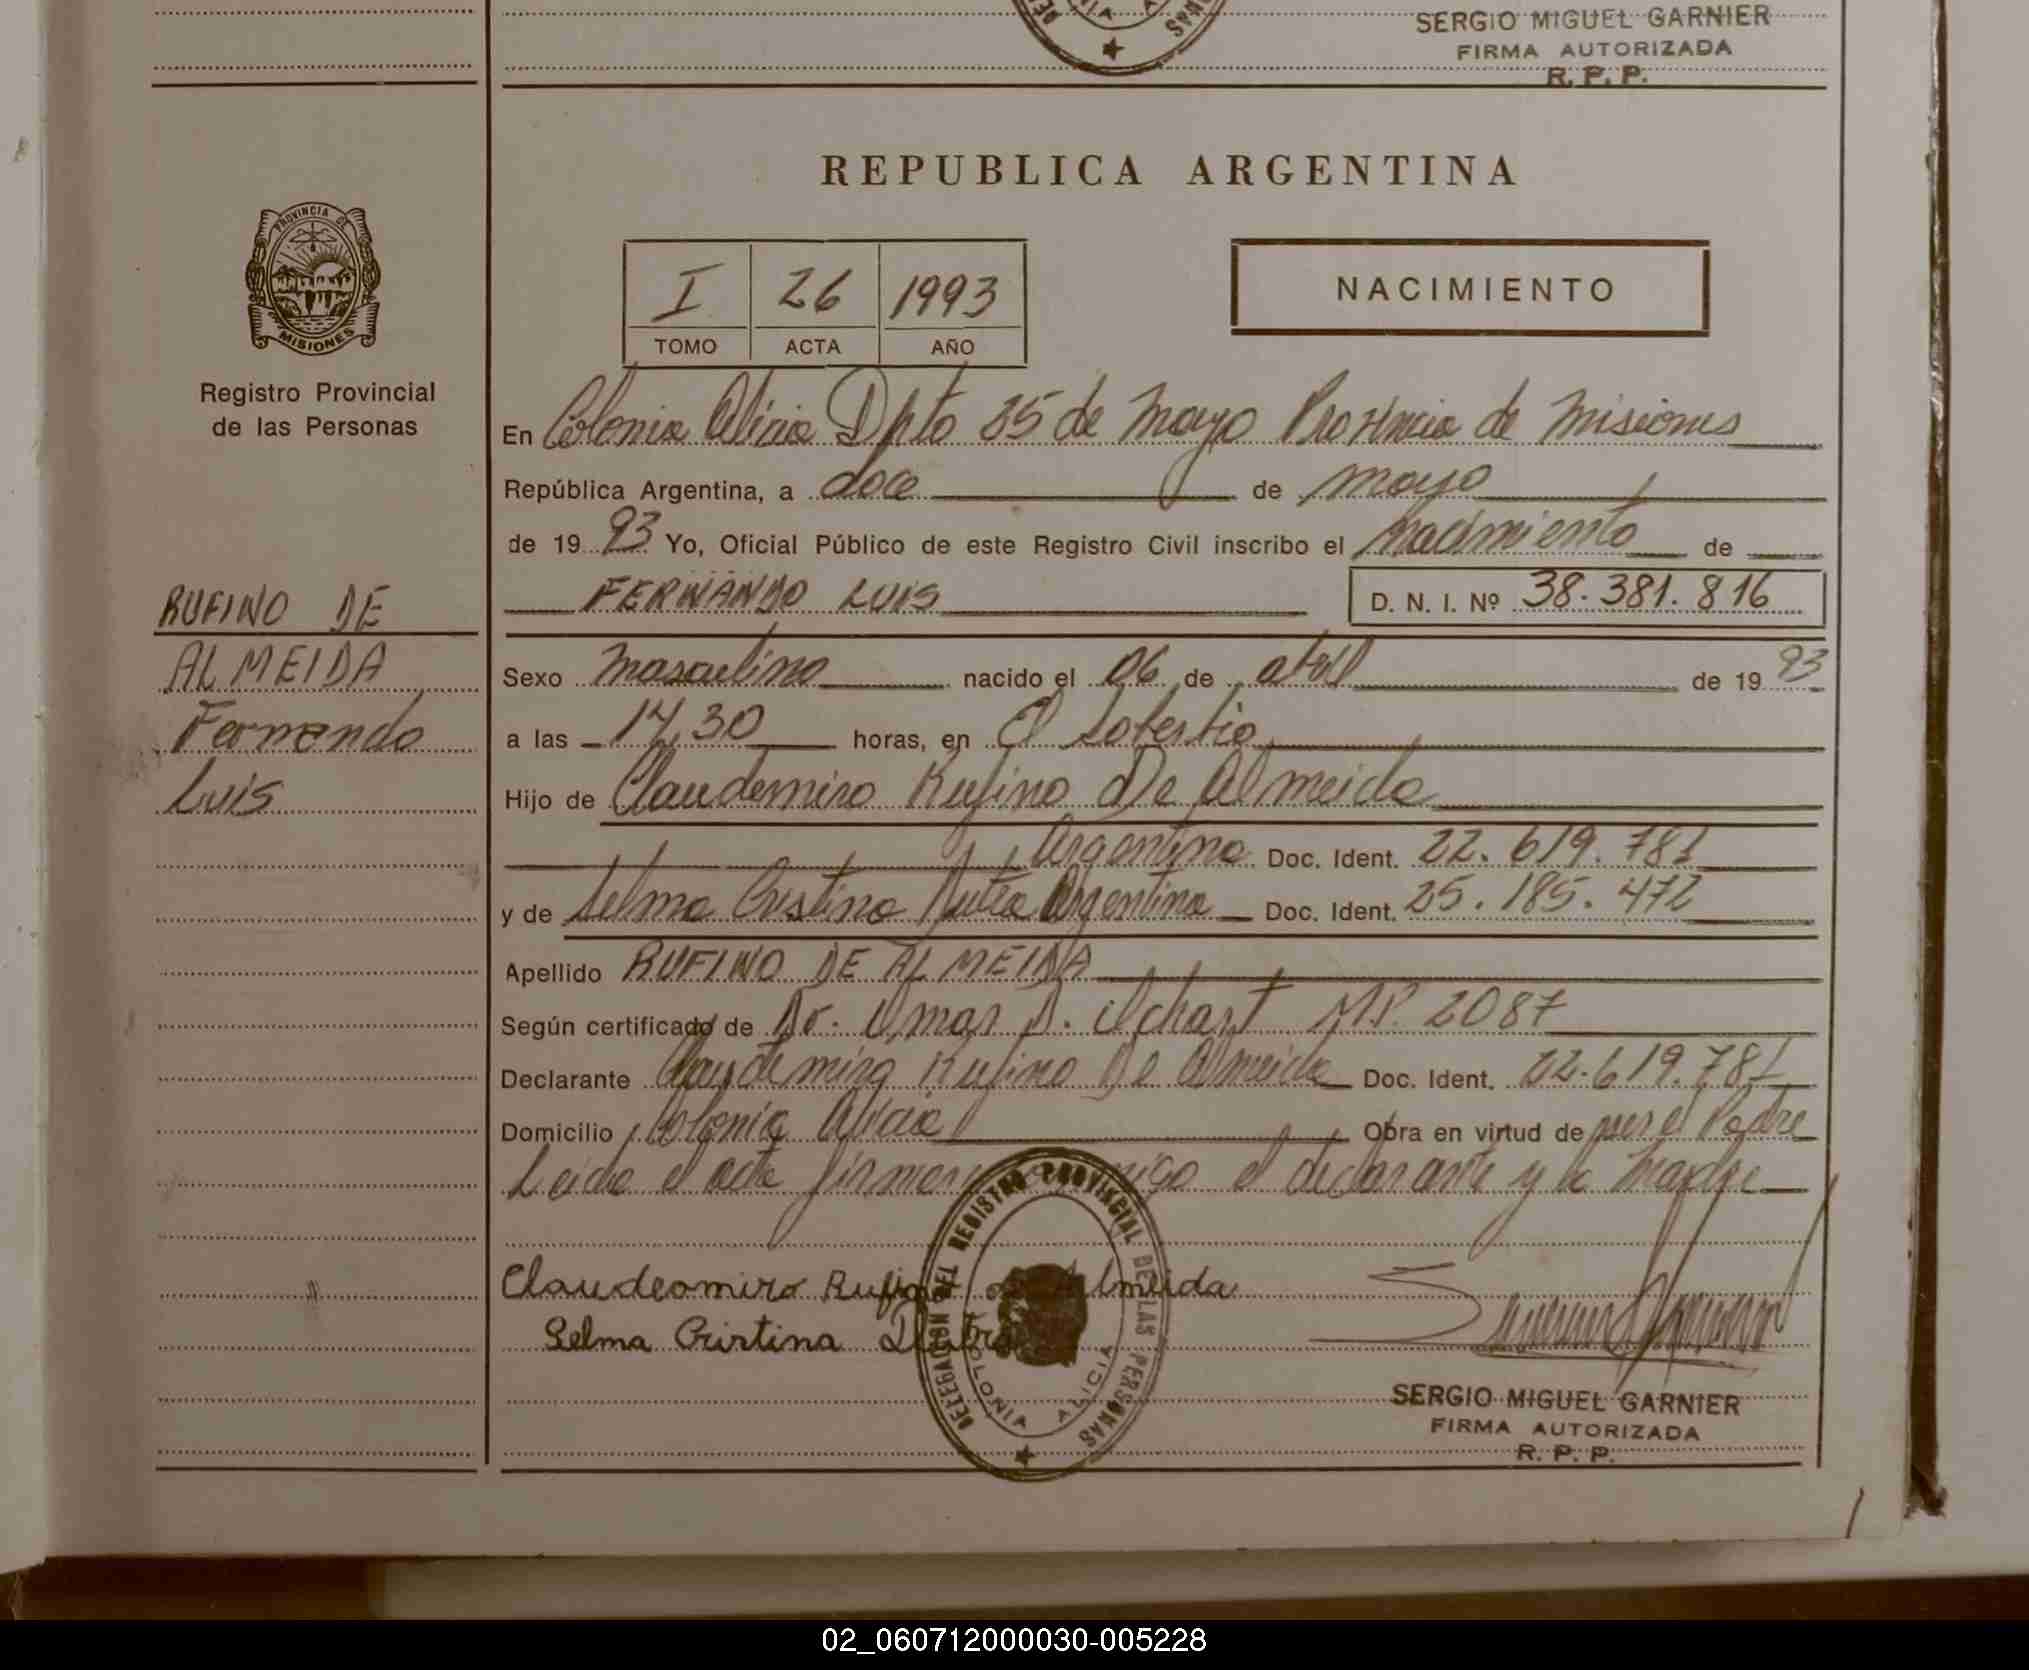 SERGIO MIGUEL GARNIER
FIRMA AUTORIZADA
R. P. P.
REPUBLICA ARGENTINA
PROVINCIA DE
MISIONES
Registro Provincial
de las Personas
I 26 1993
TOMO ACTA AÑO
NACIMIENTO
En Colonia Alicia Dpto 25 de Mayo Provincia de Misiones
República Argentina, a doce de mayo
de 1993 Yo, Oficial Público de este Registro Civil inscribo el Nacimiento de
FERNANDO LUIS D. N. I. Nº 38.381.816
RUFINO DE
ALMEIDA
Fernando
Luis
Sexo Masculino nacido el 06 de abril de 1993
a las 14,30 horas, en El Soberbio
Hijo de Claudemiro Rufino De Almeida
Argentino Doc. Ident. 22.619.781
y de Selma Cristina Argentina Doc. Ident. 25.185.472
Apellido RUFINO DE ALMEIDA
Según certificado de Dr. Elmar D. MP. 2087
Declarante Claudemiro Rufino De Almeida Doc. Ident. 22.619.781
Domicilio Colonia Alicia Obra en virtud de ser el Padre
Leida el acta el declarante y la Madre
Claudeomiro Rufino de Almeida
Selma Cristina
DELEGACION DEL REGISTRO PROVINCIAL DE LAS PERSONAS
COLONIA ALICIA
SERGIO MIGUEL GARNIER
FIRMA AUTORIZADA
R. P. P.
02_060712000030-005228